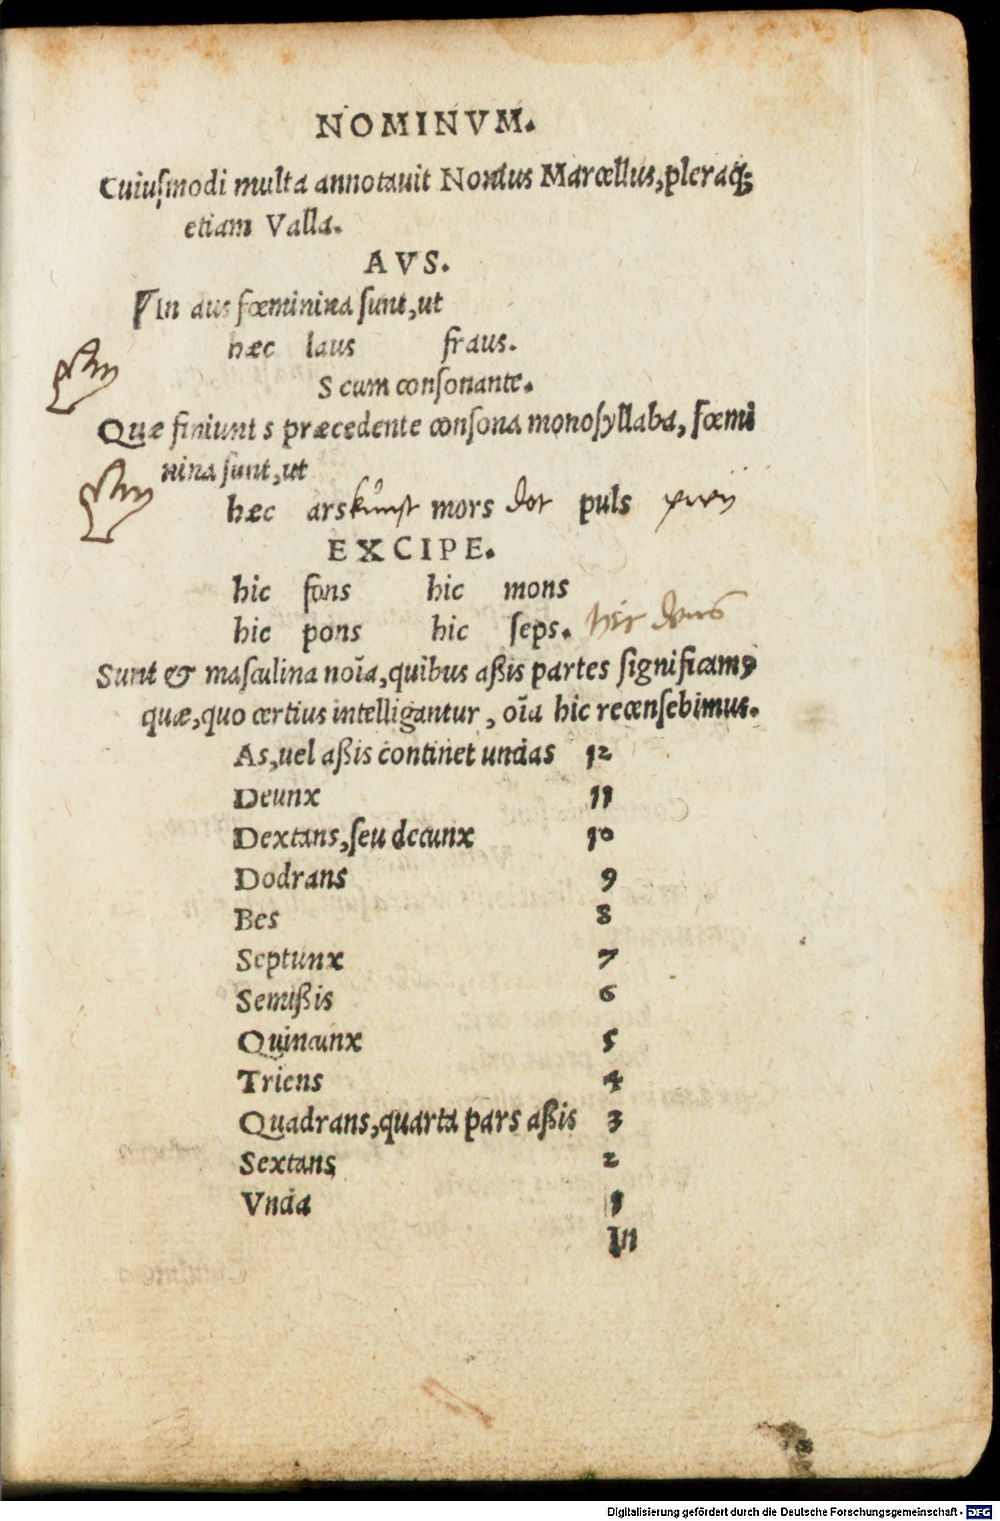 NOMINVM.
Cuiuſmodi multa annotauit Nonius Marcellus, pleraq;
etiam Valla.
AVS.
In aus fœminina ſunt, ut
hæc laus fraus.
S cum conſonante.
Quæ finiunt s præcedente conſona monoſyllaba, fœmi
nina ſunt, ut
hæc ars kunst mors dot puls
EXCIPE.
hic fons hic mons
hic pons hic ſeps. hic dens
Sunt & maſculina noīa, quibus aßis partes ſignificamꝰ
quæ, quo certius intelligantur, oīa hic recenſebimus.
As, uel aßis continet uncias 12
Deunx 11
Dextans, ſeu decunx 10
Dodrans 9
Bes 8
Septunx 7
Semißis 6
Quincunx 5
Triens 4
Quadrans, quarta pars aßis 3
Sextans 2
Vncia 1
In
Digitalisierung gefördert durch die Deutsche Forschungsgemeinschaft - DFG